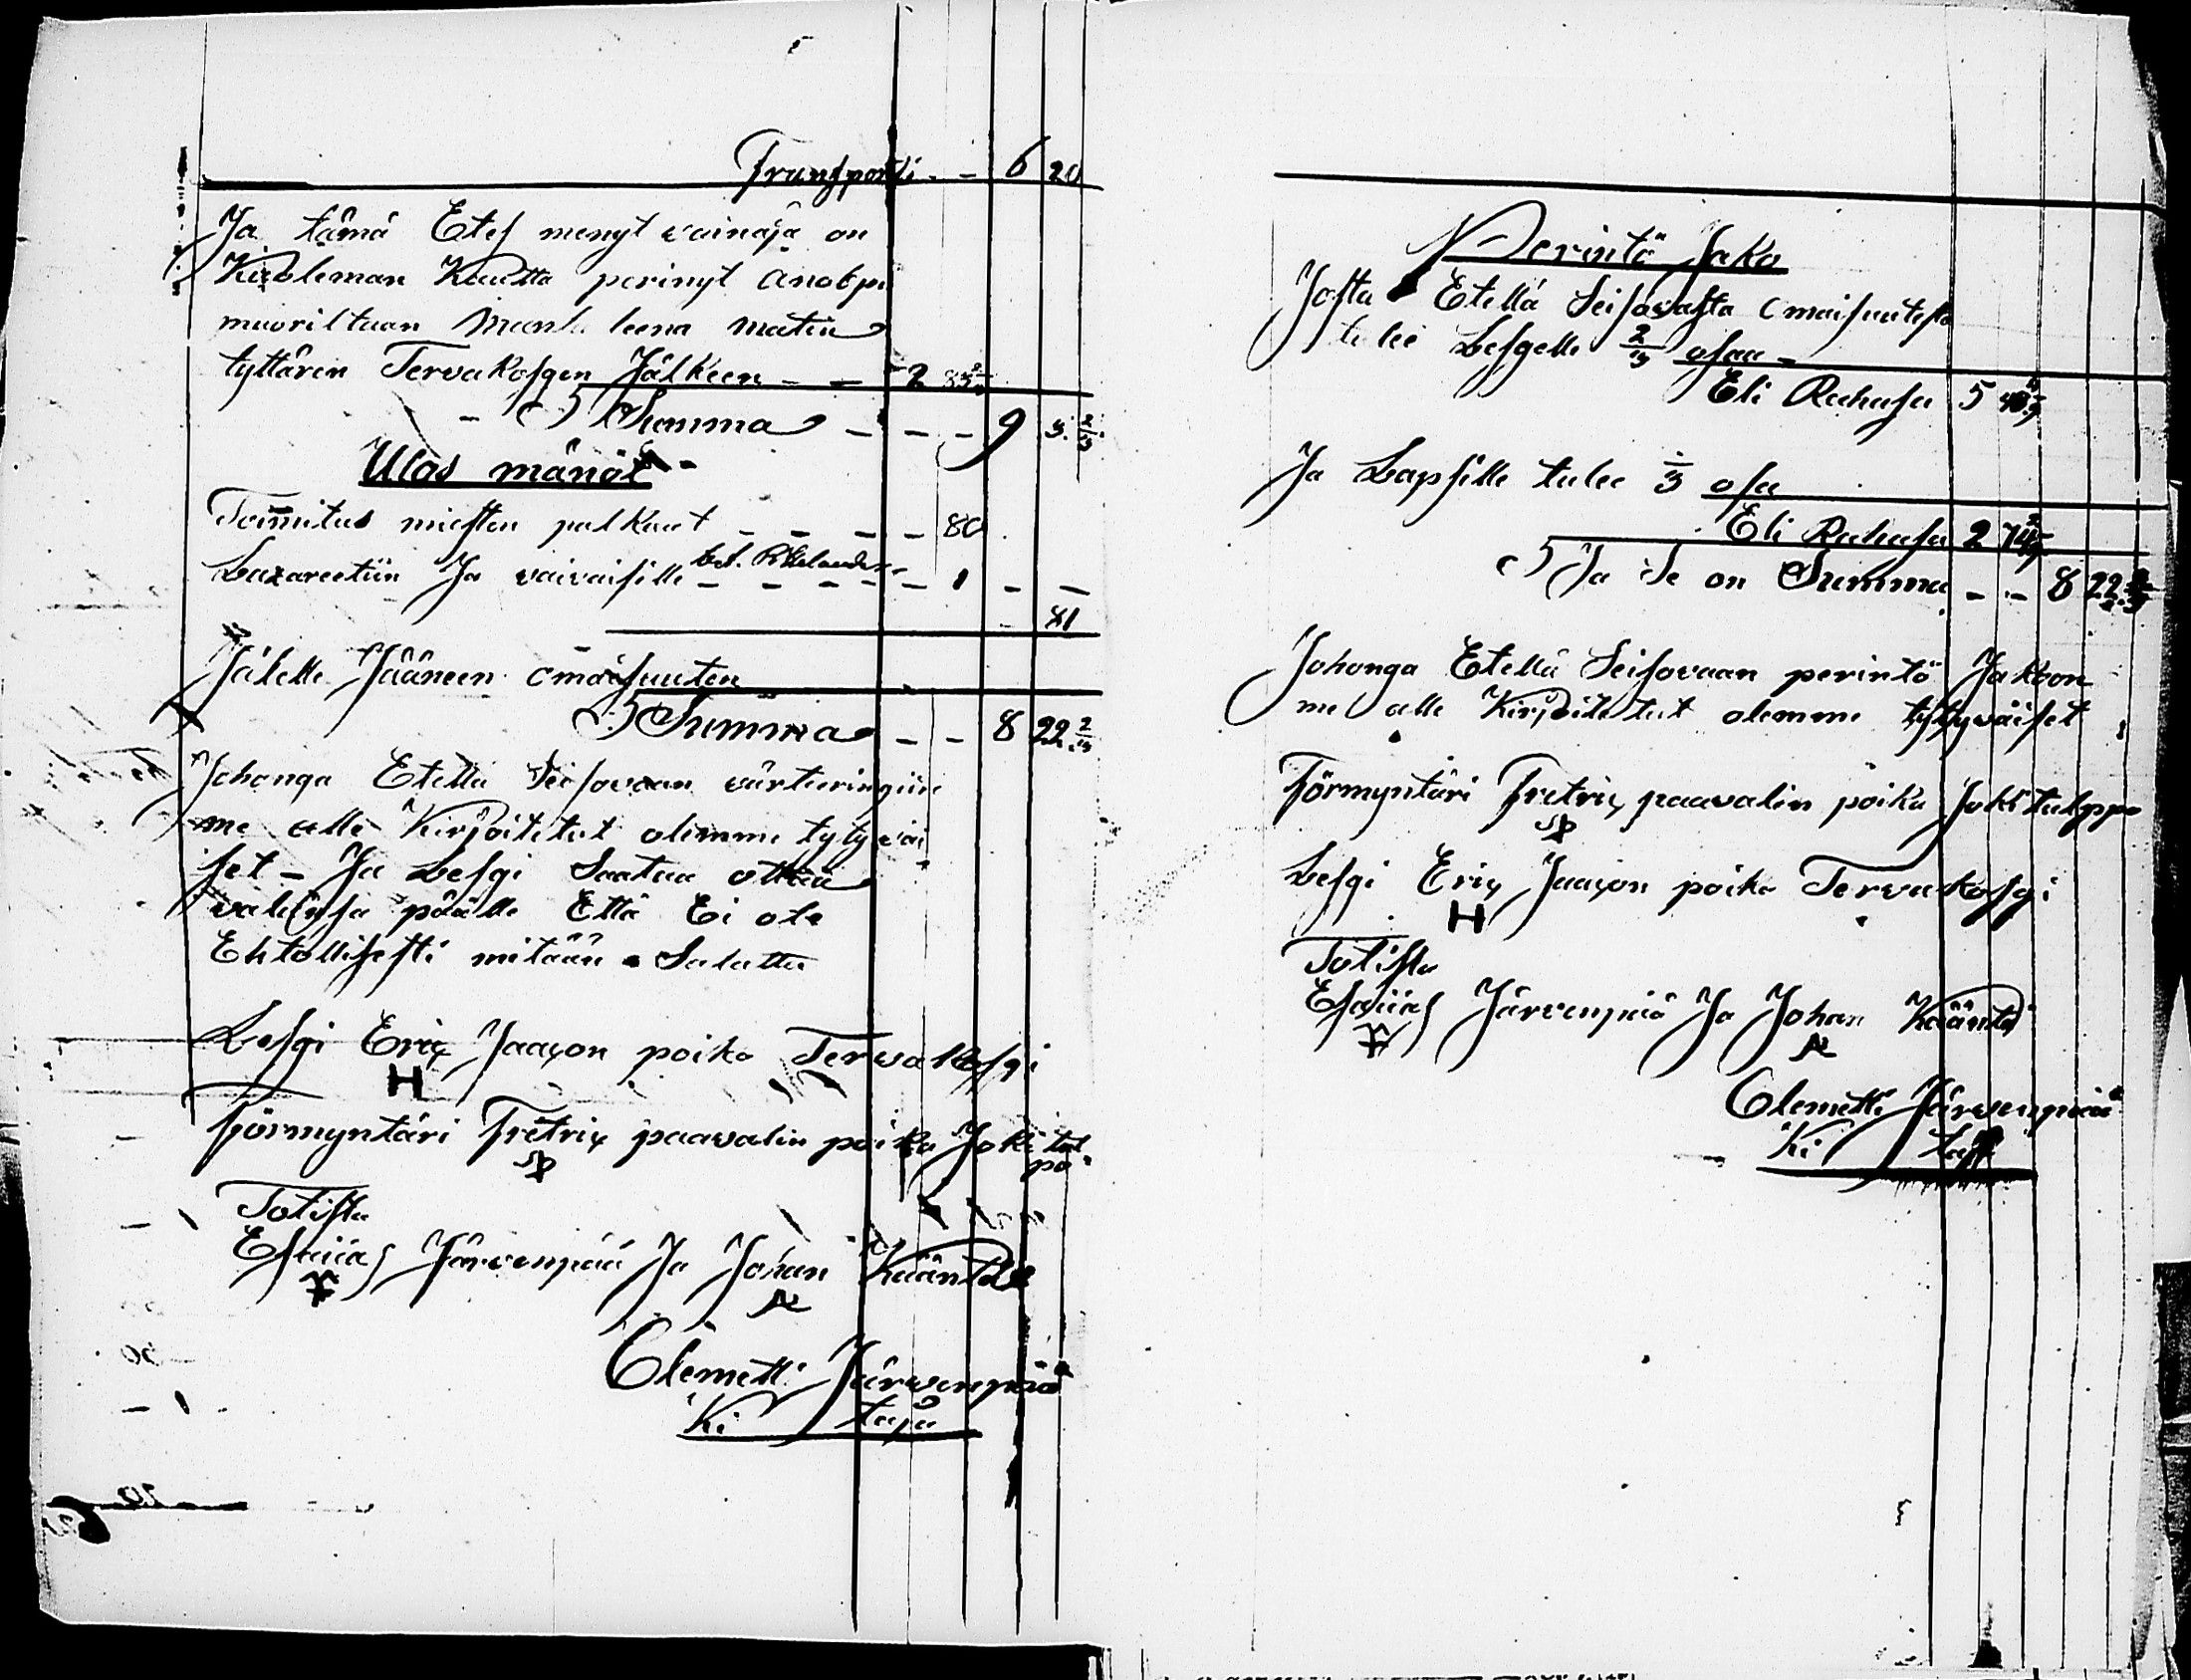 Transporti - - 6 20
Ja tämä Etes menyt vainaja on
Kuoleman Kautta perinyt anobpi
muoriltaan leena matin
tyttären Tervakosgen Jälkeen - - 2 83
Summa - - - 9 3 2/3
Ulos mänöt -
Toimitus miesten palkaat - - - - 80
Lazareetiin Ja vaivaisille - - - - - 1 - -
- 81
Jälelle Jääneen omaisuuten
Summa - - 8 22 2/3
Johonga Etellä Seisovaan värteeringiin
me alle Kirjoitetut olemme tytyväi
set - Ja Lesgi Saataa ottaa
valansa päälle Että Ei ole
Ehtollisesti mitään Salattu
Lesgi Eriç Jaaçon poika Tervakosgi
H
förmyntäri Fretriç paavalin poika Joki tul
po
Totista
Esaiias Järvenpää Ja Johan Kääntä
Clemetti Järwenpää
Ki taja
Perintö Jako
Josta Etellä Seisovasta Omaisuutesta
tulee Lesgelle 2/3 osaa -
Eli Rahasa 5 48
Ja Lapsille tulee 1/3 osa
Eli Rahasa 2 74
Ja Se on Summa - - 8 22 2/3
Johonga Etellä Seisovaan perintö Jakoon
me alle Kirjoitetut olemme tytyväiset
Förmyntäri Fretriç paavalin poika Jokitulppo
Lesgi Eriç Jaaçon poika Tervakosgi
H
Totista
Esaiias Järvenpää Ja Johan Kääntä
Clemetti Järwenpää
Ki taja